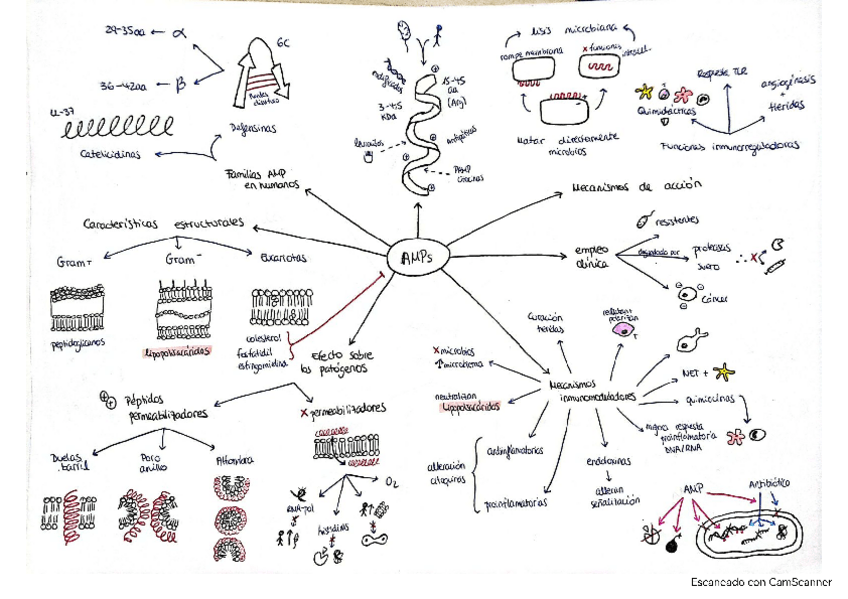 29-35aa ← α
36-42aa ← β
6C
LL-37
Catelicidinas
Defensinas
Familias AMP
en humanos
3-4.5
KDa
15-45
aa
(Arg)
Antipáticos
PAMP
lisis microbiana
rompe membrana
x funciones
intracel.
Matar directamente
microbios
Respuesta TLR
angiogénesis
+
Heridas
Quimiotácticas
Funciones inmunorreguladoras
Mecanismos de acción
Características estructurales
Gram +
Gram -
Eucariotas
peptidoglicanos
lipopolisacáridos
colesterol
fosfatidil
esfingomielina
AMPs
empleo
clínica
resistentes
degradado por
proteasas
suero
∴ x
Cáncer
Efecto sobre
los patógenos
Péptidos
permeabilizadores
x permeabilizadores
Duelas
barril
Poro
anillo
Alfombra
RNA-pol
histidinas
O₂
Curación
heridas
x microbios
↑ microbioma
neutralizan
lipopolisacáridos
Mecanismos
inmunomoduladores
NET +
quimiocinas
mejora respuesta
proinflamatoria
DNA/RNA
alteración
citoquinas
antinflamatorios
proinflamatorias
endotoxinas
alteran
señalización
AMP
Antibiótico
Escaneado con CamScanner